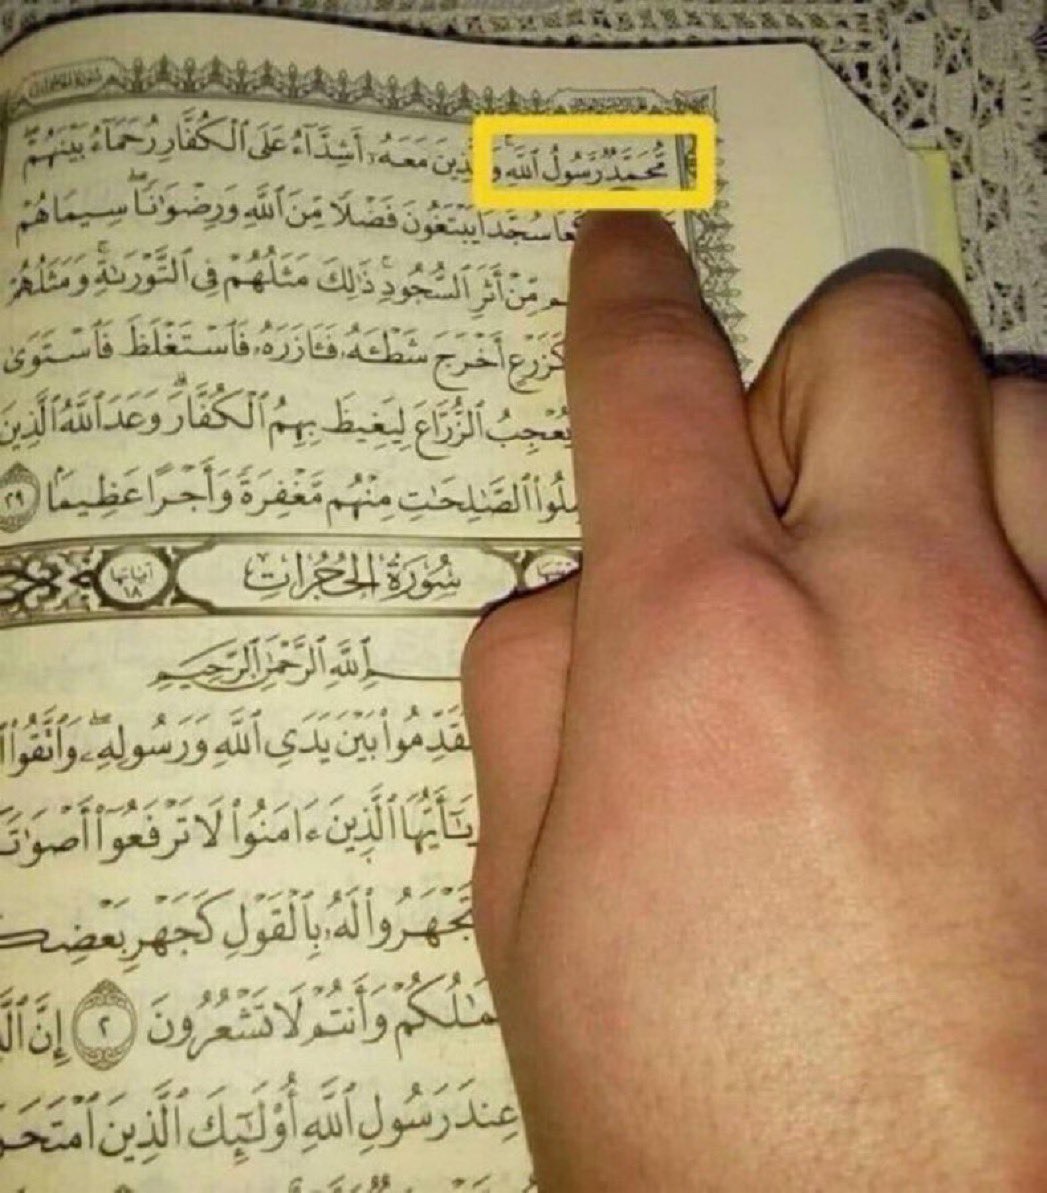 مُّحَمَّدٌ رَّسُولُ ٱللَّهِ وَٱلَّذِينَ مَعَهُۥٓ أَشِدَّآءُ عَلَى ٱلْكُفَّارِ رُحَمَآءُ بَيْنَهُمْ
سُجَّدًا يَبْتَغُونَ فَضْلًا مِّنَ ٱللَّهِ وَرِضْوَٰنًا سِيمَاهُمْ
مِّنْ أَثَرِ ٱلسُّجُودِ ذَٰلِكَ مَثَلُهُمْ فِى ٱلتَّوْرَىٰةِ وَمَثَلُهُمْ
كَزَرْعٍ أَخْرَجَ شَطْـَٔهُۥ فَـَٔازَرَهُۥ فَٱسْتَغْلَظَ فَٱسْتَوَىٰ
يُعْجِبُ ٱلزُّرَّاعَ لِيَغِيظَ بِهِمُ ٱلْكُفَّارَ وَعَدَ ٱللَّهُ ٱلَّذِينَ
ٱلصَّٰلِحَٰتِ مِنْهُم مَّغْفِرَةً وَأَجْرًا عَظِيمًۢا ٢٩
سُورَةُ الحُجُرَاتِ آياتها ١٨
ٱللَّهِ ٱلرَّحْمَٰنِ ٱلرَّحِيمِ
تُقَدِّمُوا۟ بَيْنَ يَدَىِ ٱللَّهِ وَرَسُولِهِۦ وَٱتَّقُوا۟
يَٰٓأَيُّهَا ٱلَّذِينَ ءَامَنُوا۟ لَا تَرْفَعُوٓا۟
تَجْهَرُوا۟ لَهُۥ بِٱلْقَوْلِ كَجَهْرِ
وَأَنتُمْ لَا تَشْعُرُونَ ٢ إِنَّ
عِندَ رَسُولِ ٱللَّهِ أُو۟لَٰٓئِكَ ٱلَّذِينَ